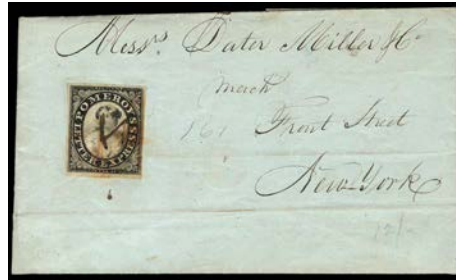 Messrs Dater Miller & Co
merch
161 Front Street
New-York
POMEROY'S
LETTER EXPRESS